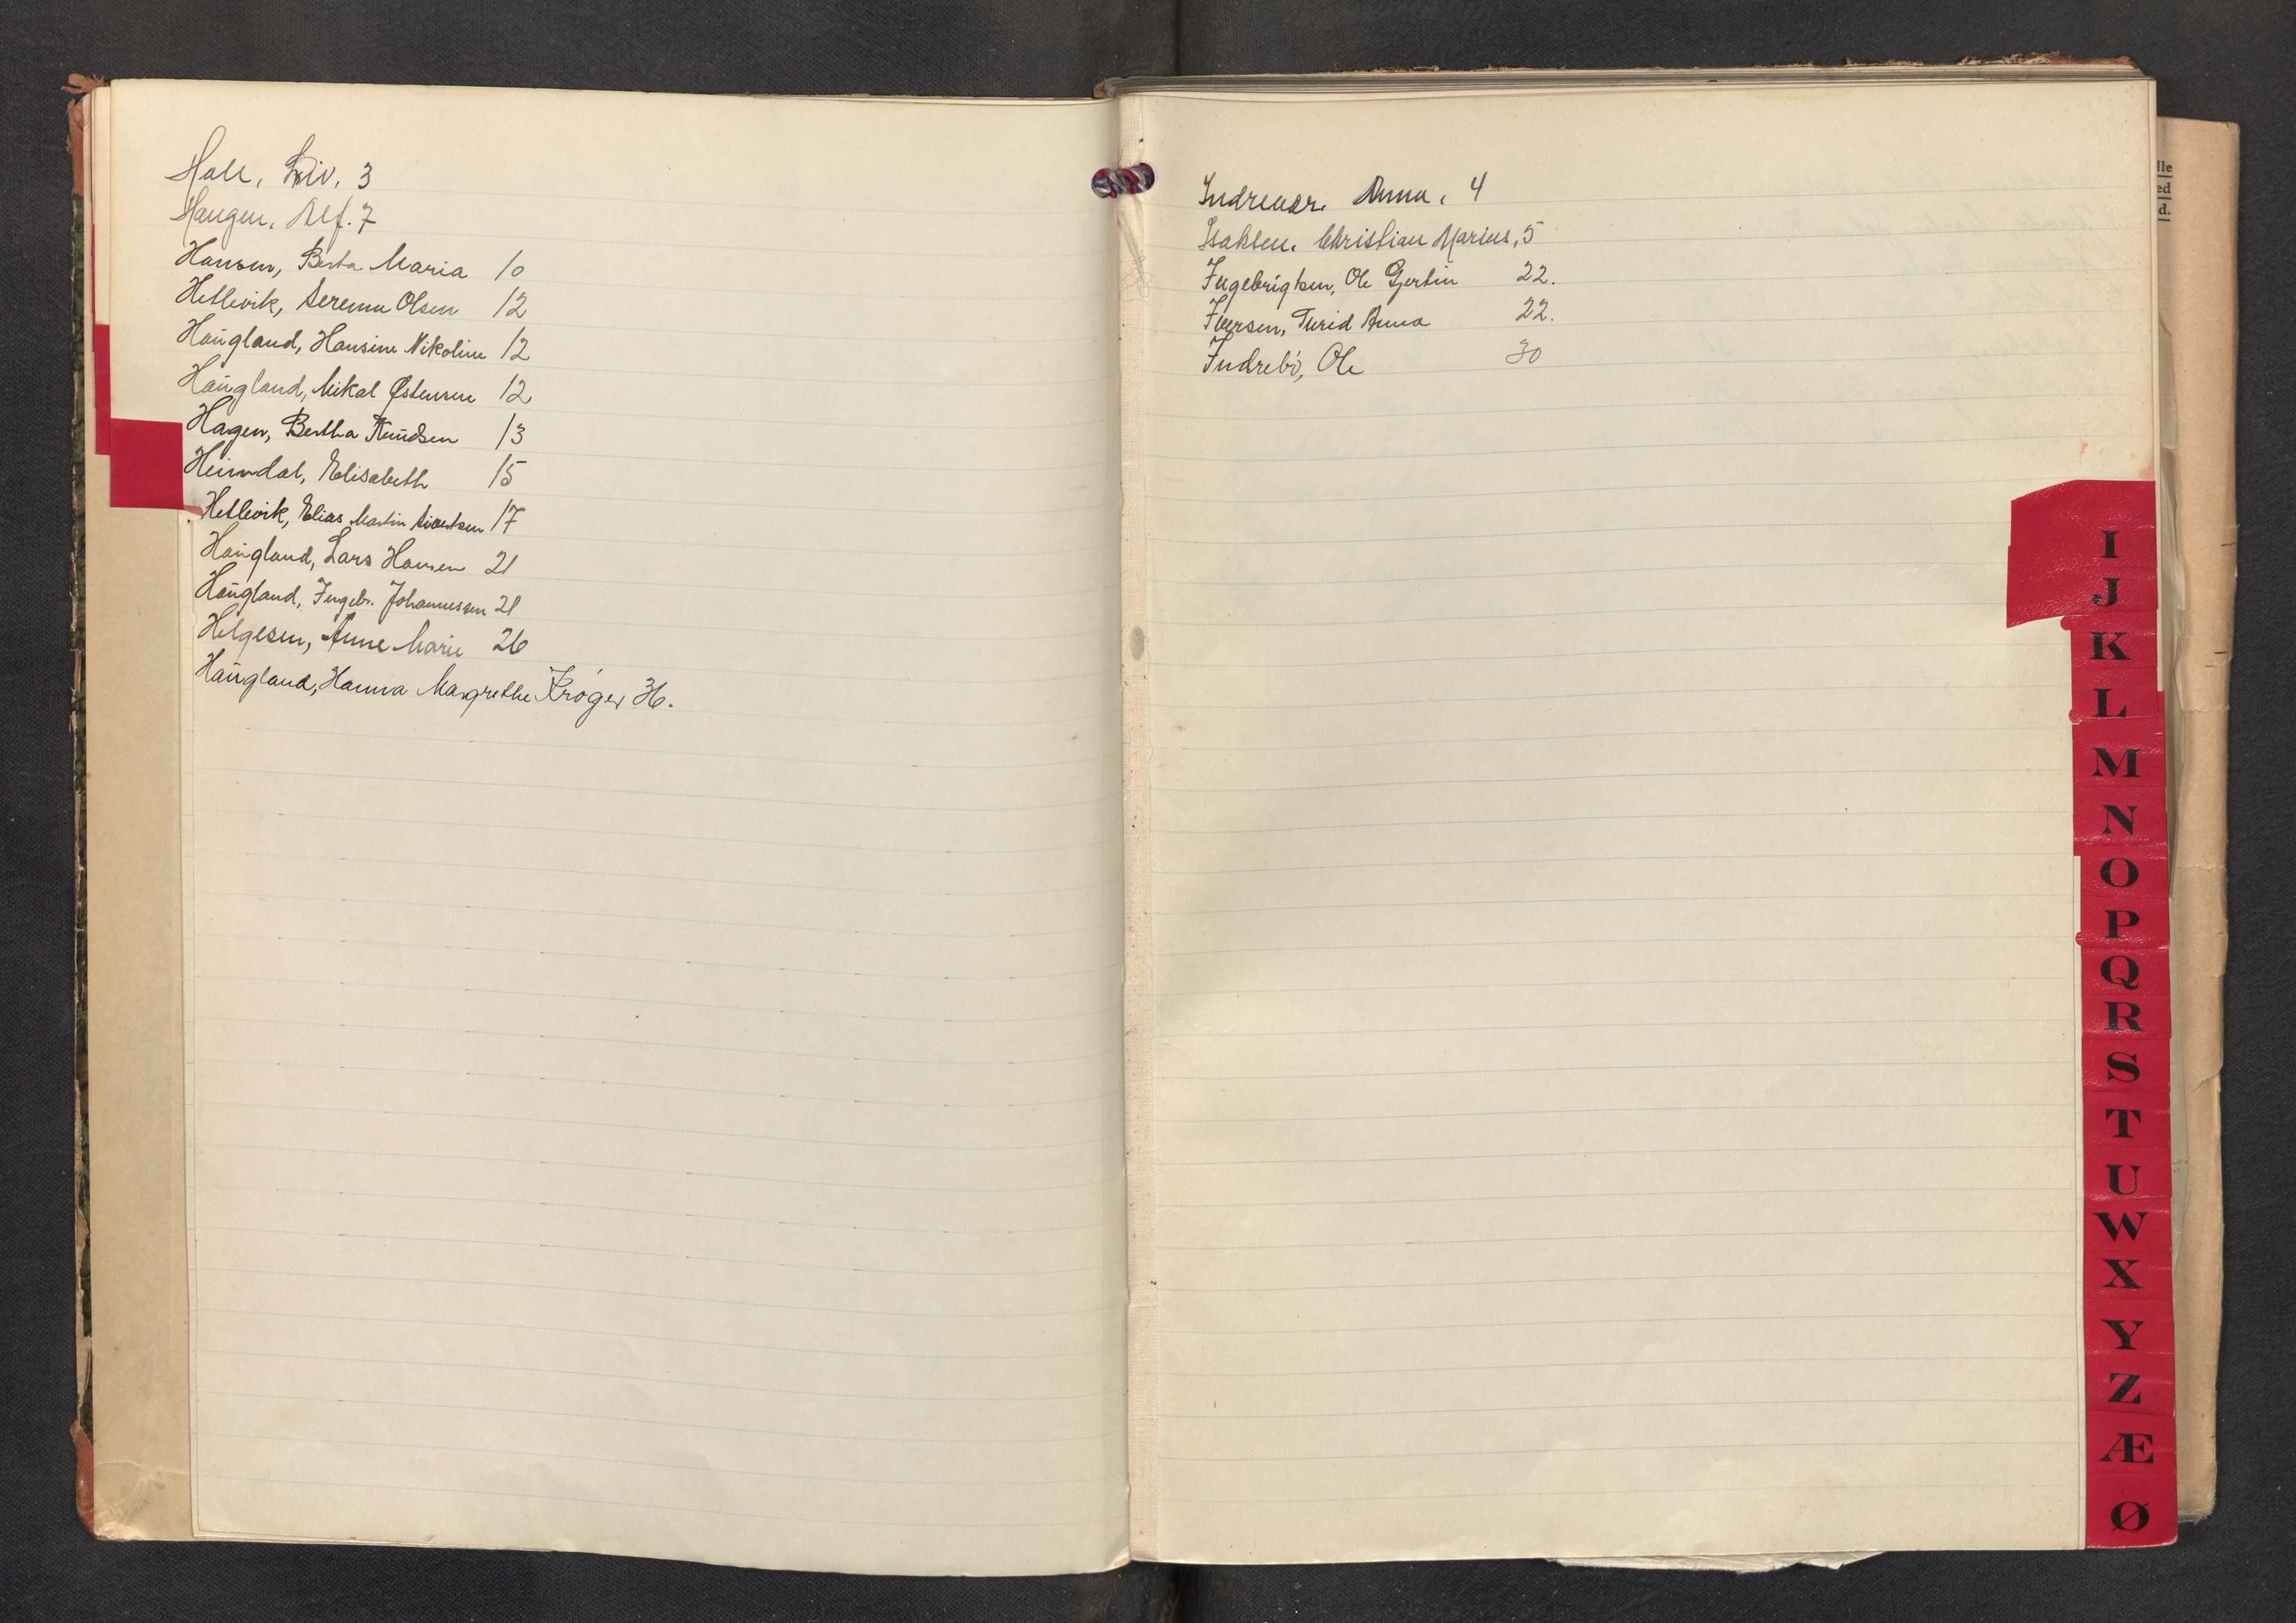 Hole, Liv. 3
Haugen, Alf. 7
Hansen, Berta Maria 10
Hetlevik, Serenna Olsen 12
Haugland, Hansine Nikoline 12
Haugland, Mikal Østensen 12
Hagen, Bertha Knudsen 13
Heimdal, Elisabeth 15
Hetlevik, Elias Martin Sivertsen 17
Haugland, Lars Hansen 21
Haugland, Ingebr. Johannessen 21
Helgesen, Anne Marie 26
Haugland, Hanna Margrethe Krøger H.
Indrevær. Anna, 4
Isaksen. Christian Marius, 5
Ingebrigtsen, Ole Gjertin 22.
Iversen, Turid Anna 22.
Indrebö, Ole 30
lle
ed
d.
I
J
K
L
M
N
O
P
Q
R
S
T
U
W
X
Y
Z
Æ
Ø